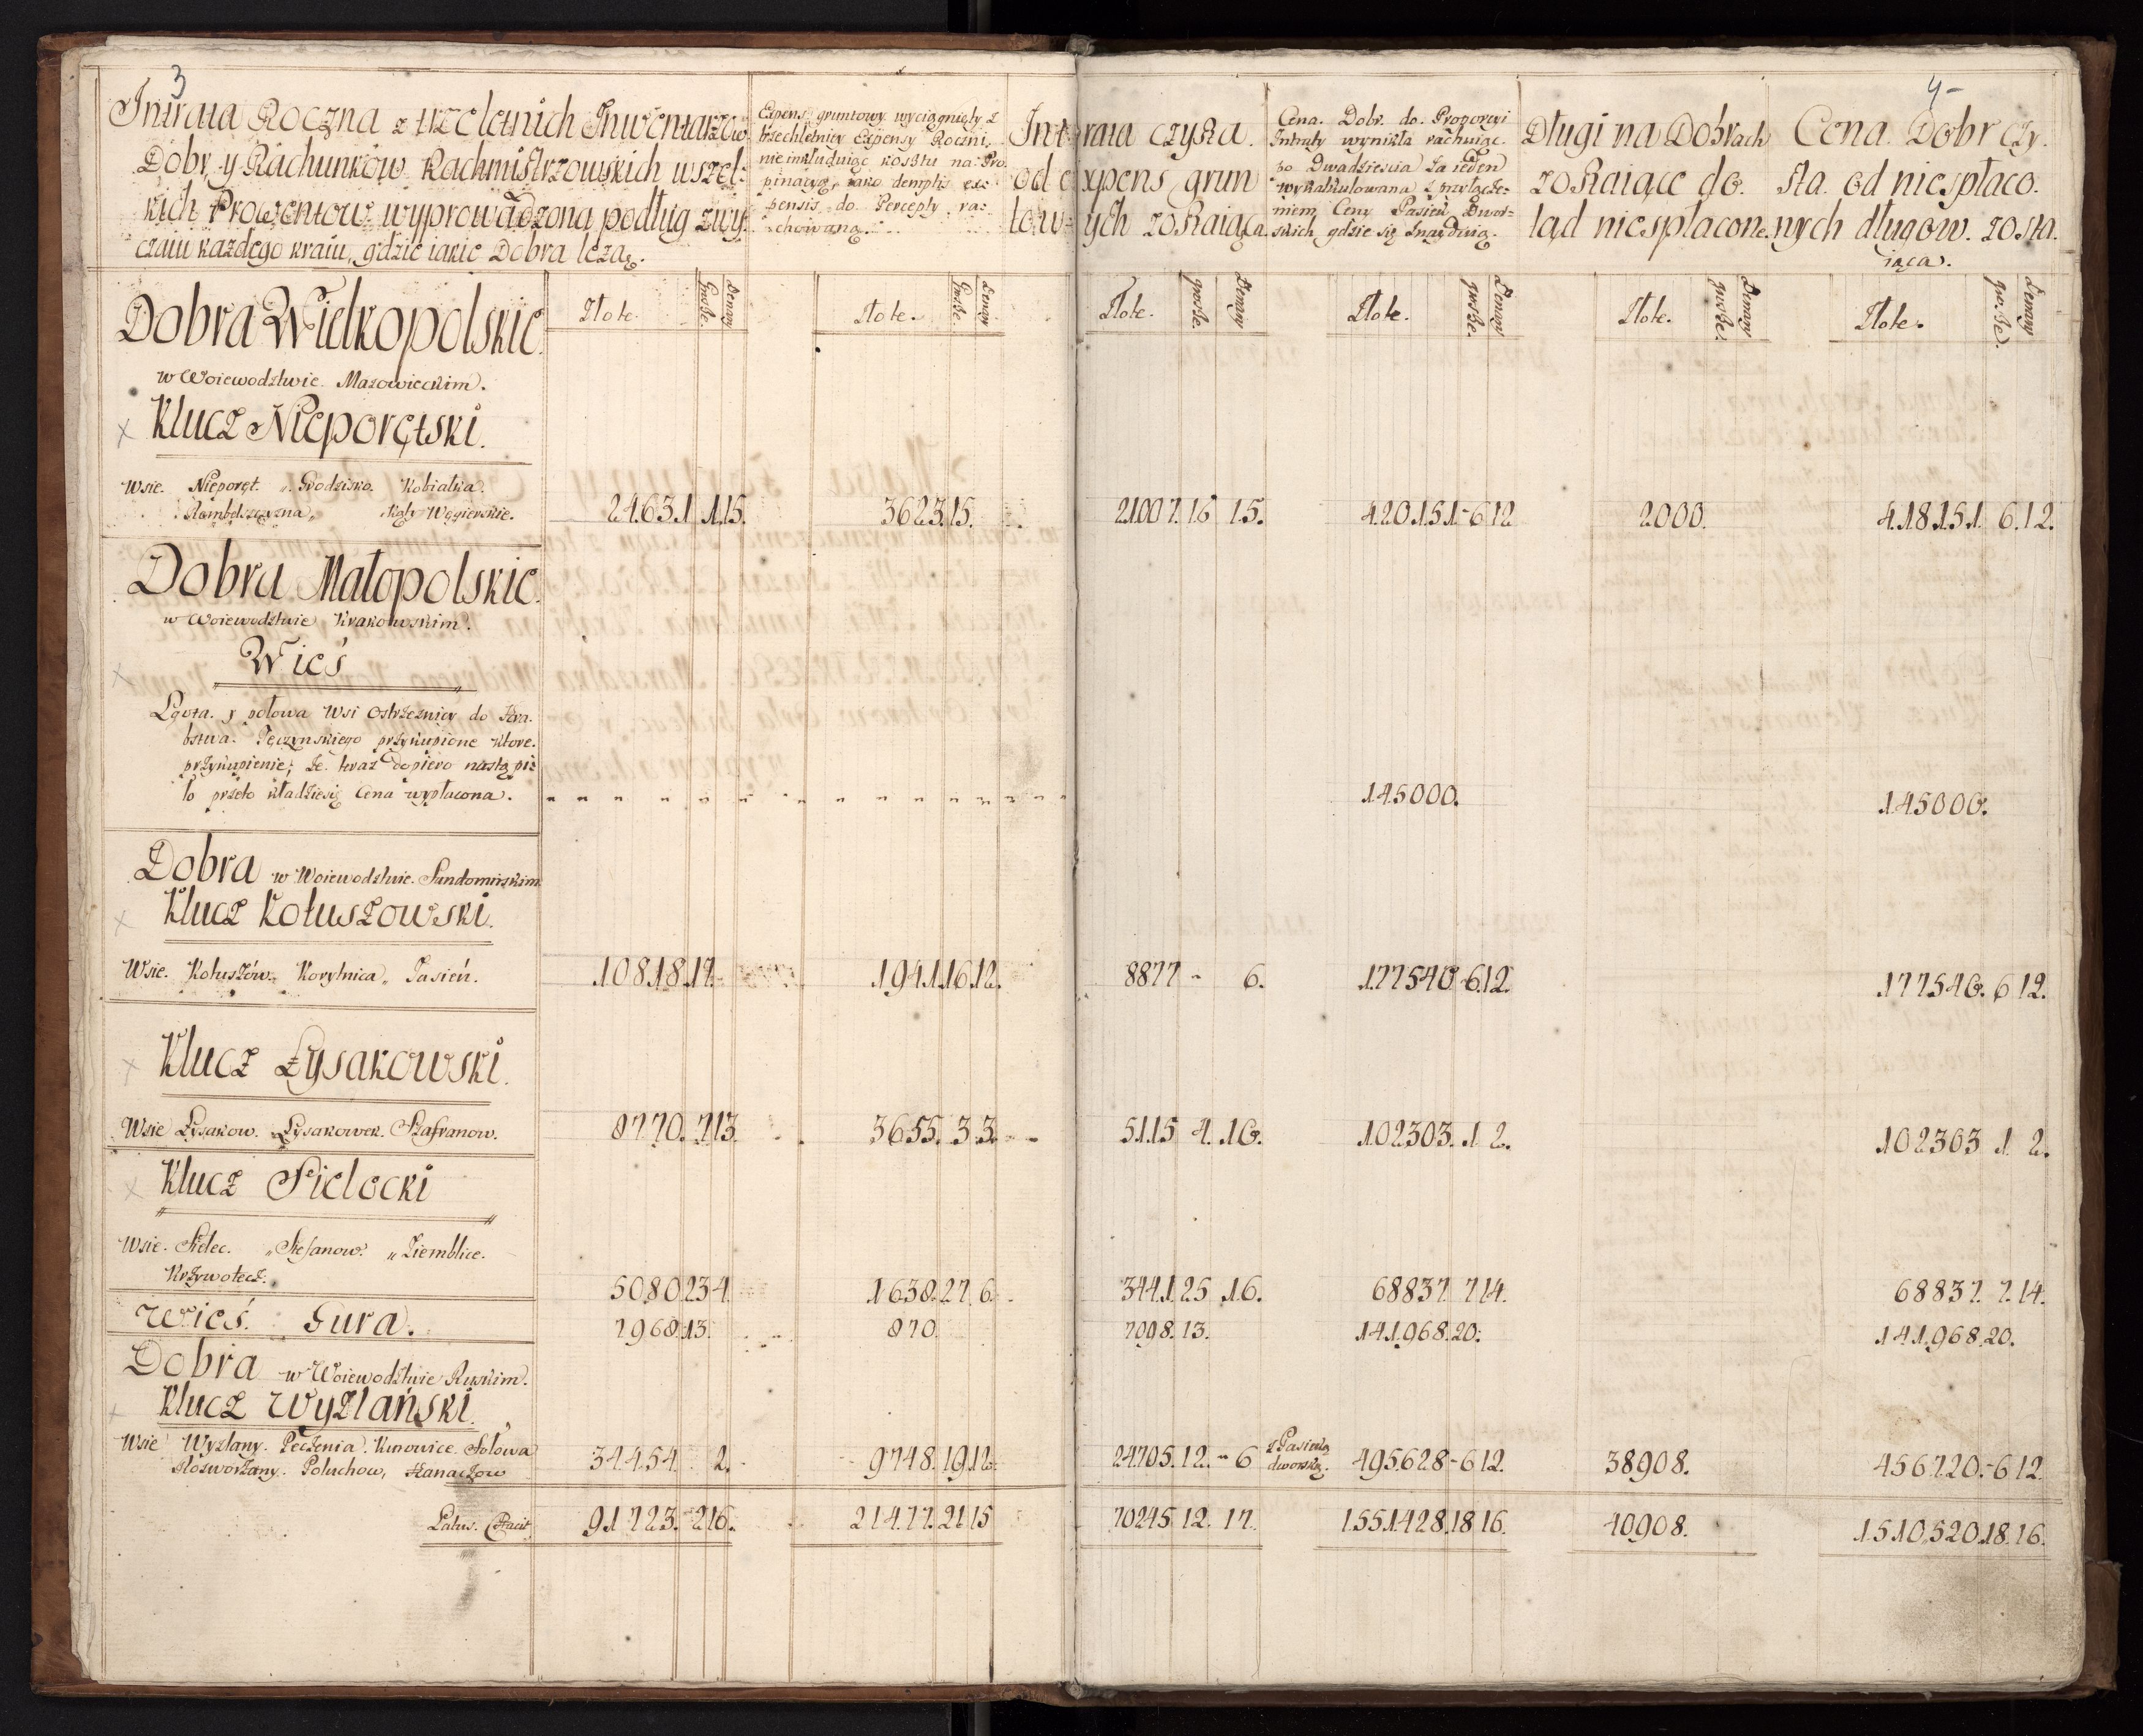 3
4-
Intrata Roczna z trzecletnich Inwentarzow
Dobr, y Rachunkow Rachmistrzowskich wszel:
kich Prowentow wyprowadzona podług zwy:
czaiu każdego kraiu, gdzie iakie Dobra leżą.
Expens gruntowy wyciągnięty z
trzechletniey Expensy Roczni,
nie inkluduiąc kosztu na Pro
pinacyą, iako demptis ex:
pensis do Percepty ra:
chowaną.
Intrata czysta.
od expens grun
towych zostaiąca.
Cena Dobr do Proporcyi
Intraty wynikła rachuiąc
po Dwadziescia za ieden
wykalkulowana z przyłącze:
niem Ceny Pasiek Dwor:
skich gdzie się znayduią.
Długi na Dobrach
zostaiące do
tąd niespłacone.
Cena Dobr czy.
sta od niespłaco.
nych długow. zosta.
iąca.
Złote. Grosze. Denary
Złote. Grosze. Denary
Złote. grosze. Denary
Złote. grosze. Denary
Złote. grosze. Denary
Złote. grosze. Denary
Dobra Wielkopolskie
w Woiewodztwie Mazowieckim.
Klucz Nieporętski.
Wsie. Nieporęt. Grodzisko. Kobiałka.
Rembelszczyzna, Kąty Węgierskie.
24631 1 15. 3623 15. 21007. 15 15. 420151 - 6 12 2000. 418151 6. 12.
Dobra Małopolskie.
w Woiewodztwie Krakowskim.
Wieś
Lgota. y połowa Wsi Ostrężnicy do Hra.
bstwa. Tęczynskiego przykupione ktore.
przykupienie, że teraz dopiero nastąpi:
ło przeto kładzie się Cena wypłacona.
145000. 145000.
Dobra w Woiewodztwie. Sandomirskim
Klucz Kołuszowski.
Wsie. Kołuszów. Korytnica, Jasień.
10818. 17. 1941. 16. 12. 8877 - 6. 177540 - 6. 12. 177540. 6 12.
Klucz Łysakowski.
Wsie Łysakow. Łysakowek. Szafranow.
8770. 7 13. 3655. 3 3. 5115 4. 10. 102303. 1 2. 102303 1. 2.
Klucz Sielecki
Wsie. Sielec. Stefanow. Ziemblice.
Krzywołecz.
5080 23 4. 1638. 27. 6. 3441. 25 16. 68837. 7 14. 68837. 7. 14.
Wieś. Gura.
7968. 13. 870. 7098. 13. 141968. 20. 141968. 20.
Dobra w Woiewodztwie Ruskim.
Klucz Wyżlański.
Wsie Wyżlany. Peczenia. Kurowice. Sołowa
Rosworzany. Poluchow, Hanaczow
34454. 2. 9748. 19. 12. 24705. 12. - 6 z Pasieką
dworską. 495628 - 6 12. 38908. 456720. - 6 12.
Latus. Facit 91723. - 2 16. 21477. 21 15 70245 12. 17. 1551428. 18 16. 40908. 1510520. 18. 16.